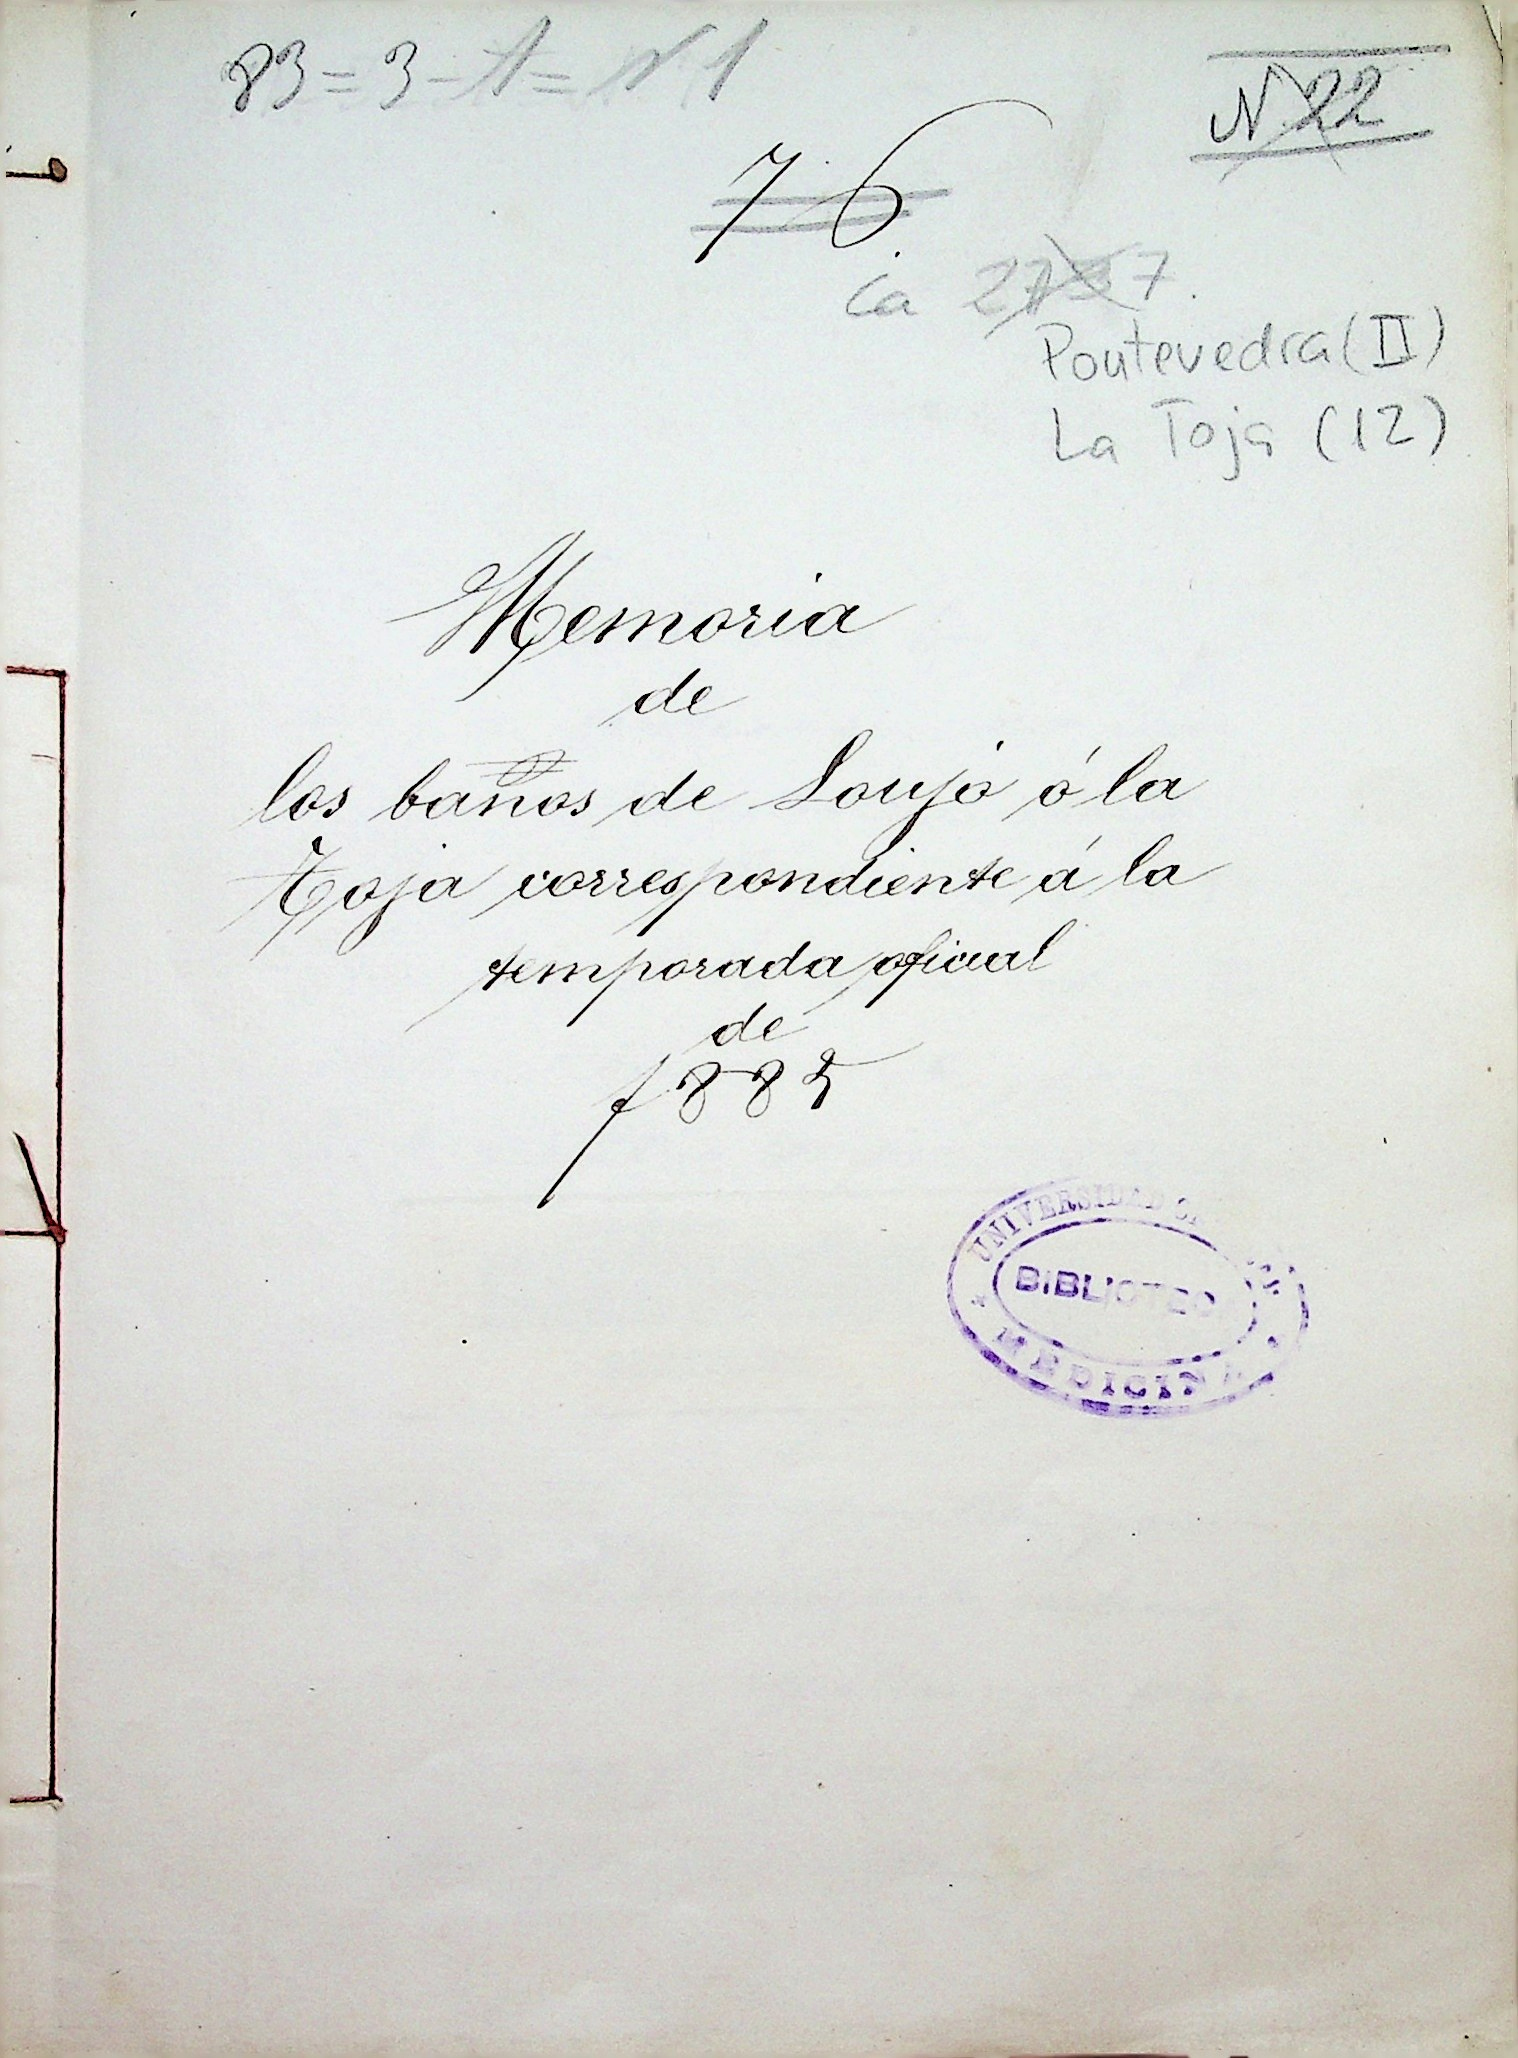 83=3-A=Nº1
N. 22
76
Ca 2737
Pontevedra (II)
La Toja (12)
Memoria
de
los baños de Loujo ó la
Toja correspondiente á la
temporada oficial
de
1885
UNIVERSIDAD
BIBLIOTEC
MEDICINA